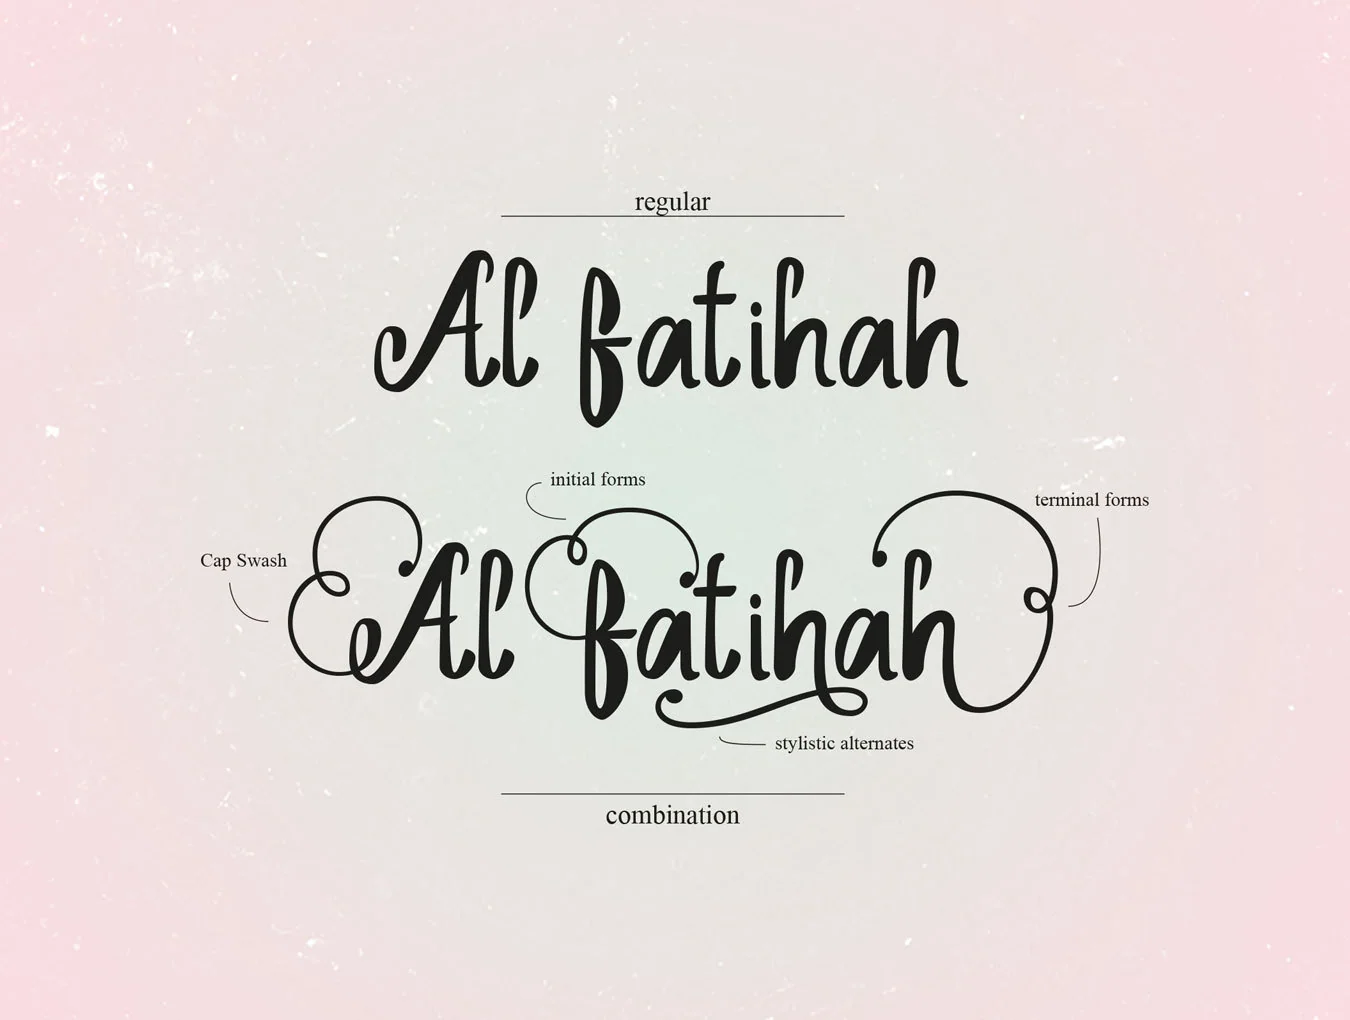 regular
Al fatihah
initial forms
terminal forms
Cap Swash
Al fatihah
stylistic alternates
combination